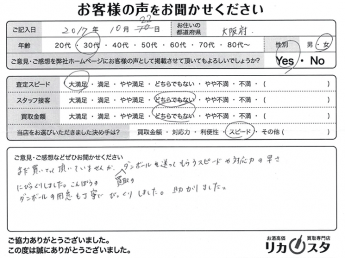 お客様の声をお聞かせください
ご記入日 2017年 10月 22日 お住いの都道府県 大阪府
年齢 20代・30代・40代・50代・60代・70代・80代〜 性別 男・女
ご意見・ご感想を弊社ホームページにお客様の声として掲載させて頂いてもよろしいでしょうか? Yes・No
査定スピード 大満足・満足・やや満足・どちらでもない・やや不満・不満・( )
スタッフ接客 大満足・満足・やや満足・どちらでもない・やや不満・不満・( )
買取金額 大満足・満足・やや満足・どちらでもない・やや不満・不満・( )
当店をお選びいただきました決め手は? 買取金額・対応力・利便性・スピード・その他( )
ご意見・ご感想などぜひお聞かせください。
まだ買って頂いていませんが、ダンボールを送ってもらうスピードや対応力の早さ
にびっくりしました。こんぽうの
ダンボールの用意も丁寧にびっくりしました。助かりました。
ご協力ありがとうございました。
この度は誠にありがとうございました。
お酒高価 買取専門店
リカスタ